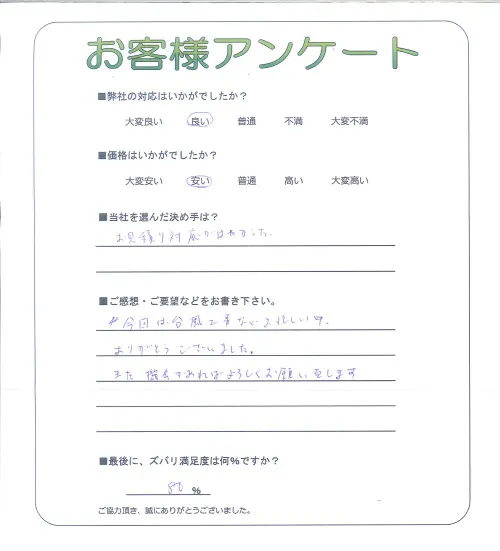 お客様アンケート
■弊社の対応はいかがでしたか？
大変良い 良い 普通 不満 大変不満
■価格はいかがでしたか？
大変安い 安い 普通 高い 大変高い
■当社を選んだ決め手は？
お見積り対応がはやかった。
■ご感想・ご要望などをお書き下さい。
今回は台風で お忙しい中、
ありがとうございました。
また機会があればよろしくお願い致します
■最後に、ズバリ満足度は何%ですか？
80 %
ご協力頂き、誠にありがとうございました。